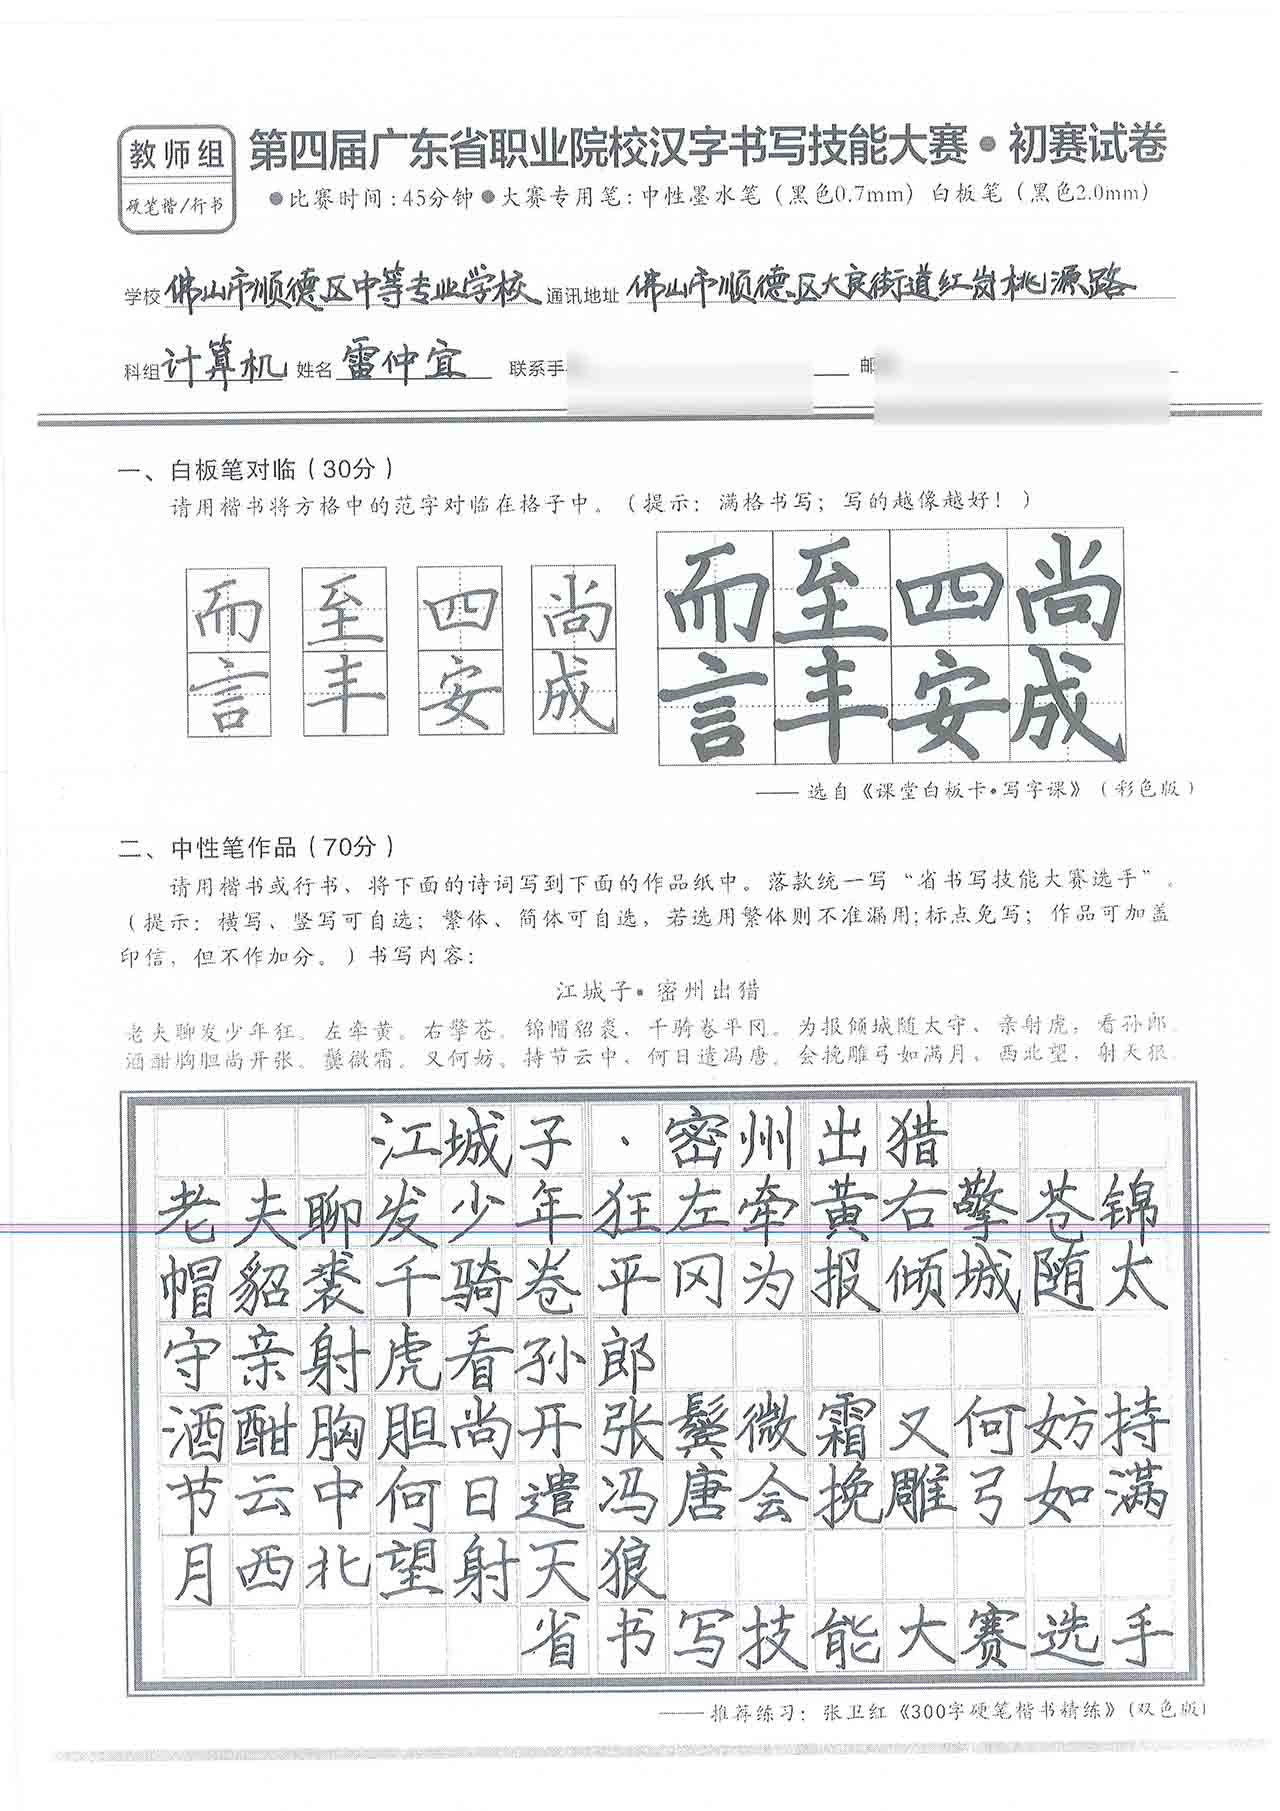 教师组
硬笔楷/行书
第四届广东省职业院校汉字书写技能大赛•初赛试卷
●比赛时间:45分钟●大赛专用笔:中性墨水笔（黑色0.7mm）白板笔（黑色2.0mm）
学校 佛山市顺德区中等专业学校 通讯地址 佛山市顺德区大良街道红岗桃源路
科组 计算机 姓名 雷仲宜 联系手 邮
一、白板笔对临（30分）
请用楷书将方格中的范字对临在格子中。（提示：满格书写；写的越像越好！）
而至四尚 而至四尚
言丰安成 言丰安成
——选自《课堂白板卡•写字课》（彩色版）
二、中性笔作品（70分）
请用楷书或行书、将下面的诗词写到下面的作品纸中。落款统一写“省书写技能大赛选手”。
（提示：横写、竖写可自选；繁体、简体可自选，若选用繁体则不准漏用;标点免写；作品可加盖
印信，但不作加分。）书写内容：
江城子•密州出猎
老夫聊发少年狂。左牵黄。右擎苍。锦帽貂裘，千骑卷平冈。为报倾城随太守、亲射虎，看孙郎。
酒酣胸胆尚开张。鬓微霜。又何妨。持节云中、何日遣冯唐。会挽雕弓如满月、西北望，射天狼。
江城子·密州出猎
老夫聊发少年狂左牵黄右擎苍锦
帽貂裘千骑卷平冈为报倾城随太
守亲射虎看孙郎
酒酣胸胆尚开张鬓微霜又何妨持
节云中何日遣冯唐会挽雕弓如满
月西北望射天狼
省书写技能大赛选手
——推荐练习：张卫红《300字硬笔楷书精练》（双色版）